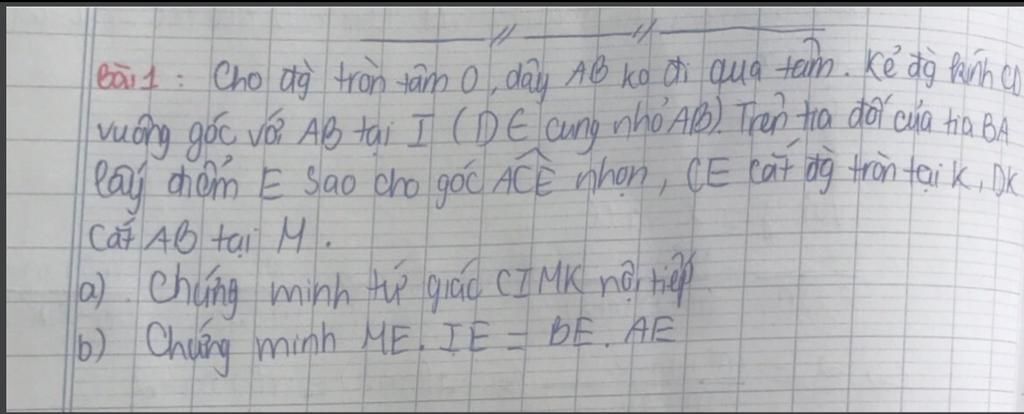 Bài 1: Cho đg̀ tròn tâm O, dây AB ko đi qua tâm. Kẻ đg̀ kính CD
vuông góc với AB tại I (D ∈ cung nhỏ AB). Trên tia đối của tia BA
lấy điểm E sao cho góc ACE nhọn, CE cắt đg̀ tròn tại K, DK
cắt AB tại M.
a) Chứng minh tứ giác CIMK nội tiếp
b) Chứng minh ME. IE = BE. AE